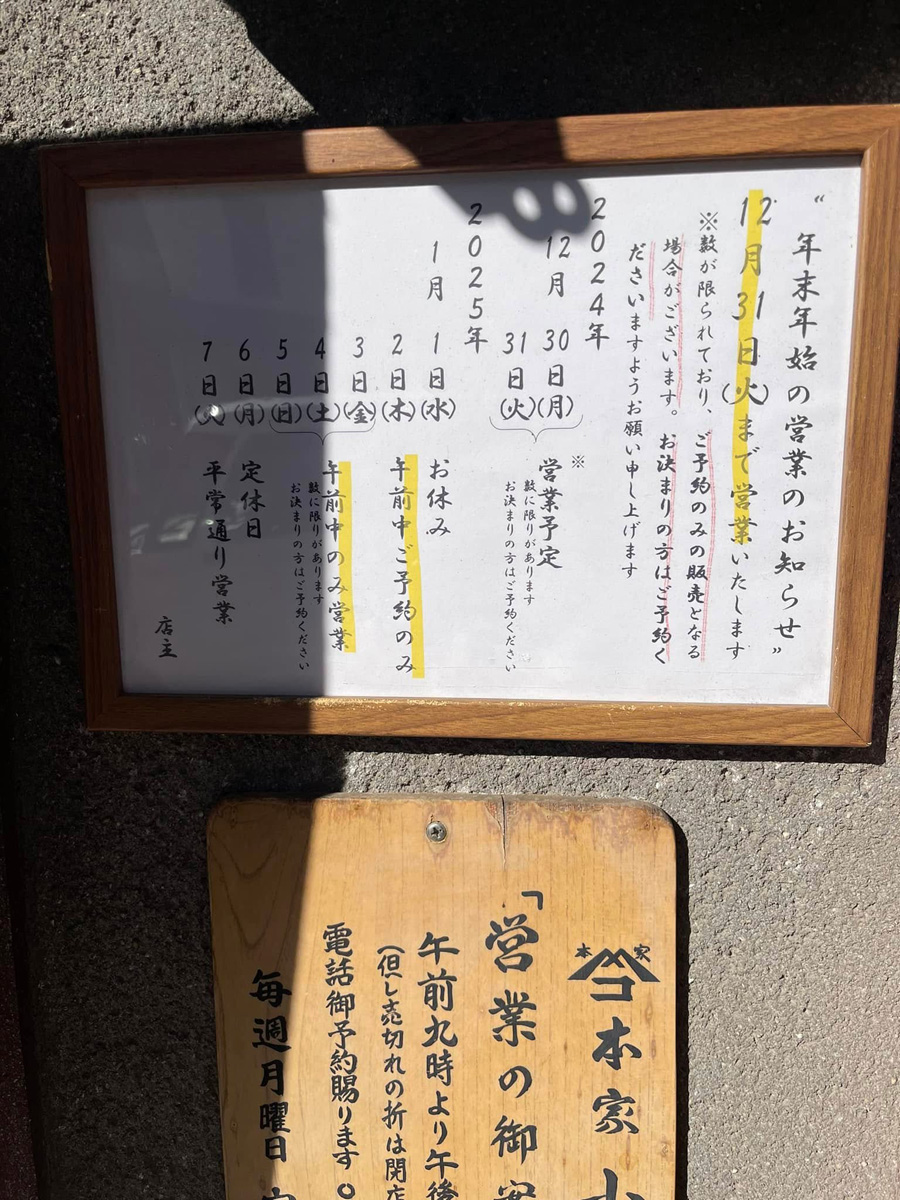 〝年末年始の営業のお知らせ〟
12月31日(火)まで営業いたします
※数が限られており、ご予約のみの販売となる
場合がございます。お決まりの方はご予約く
ださいますようお願い申し上げます
2024年
12月30日(月)
31日(火)
※営業予定
数に限りがあります
お決まりの方はご予約ください
2025年
1月1日(水)お休み
2日(木)午前中ご予約のみ
3日(金)
4日(土)
5日(日)
午前中のみ営業
数に限りがあります
お決まりの方はご予約ください
6日(月)定休日
7日(火)平常通り営業
店主
本家
コ本家
「営業の御案
午前九時より午後
(但し売切れの折は閉店
電話御予約賜ります。
毎週月曜日